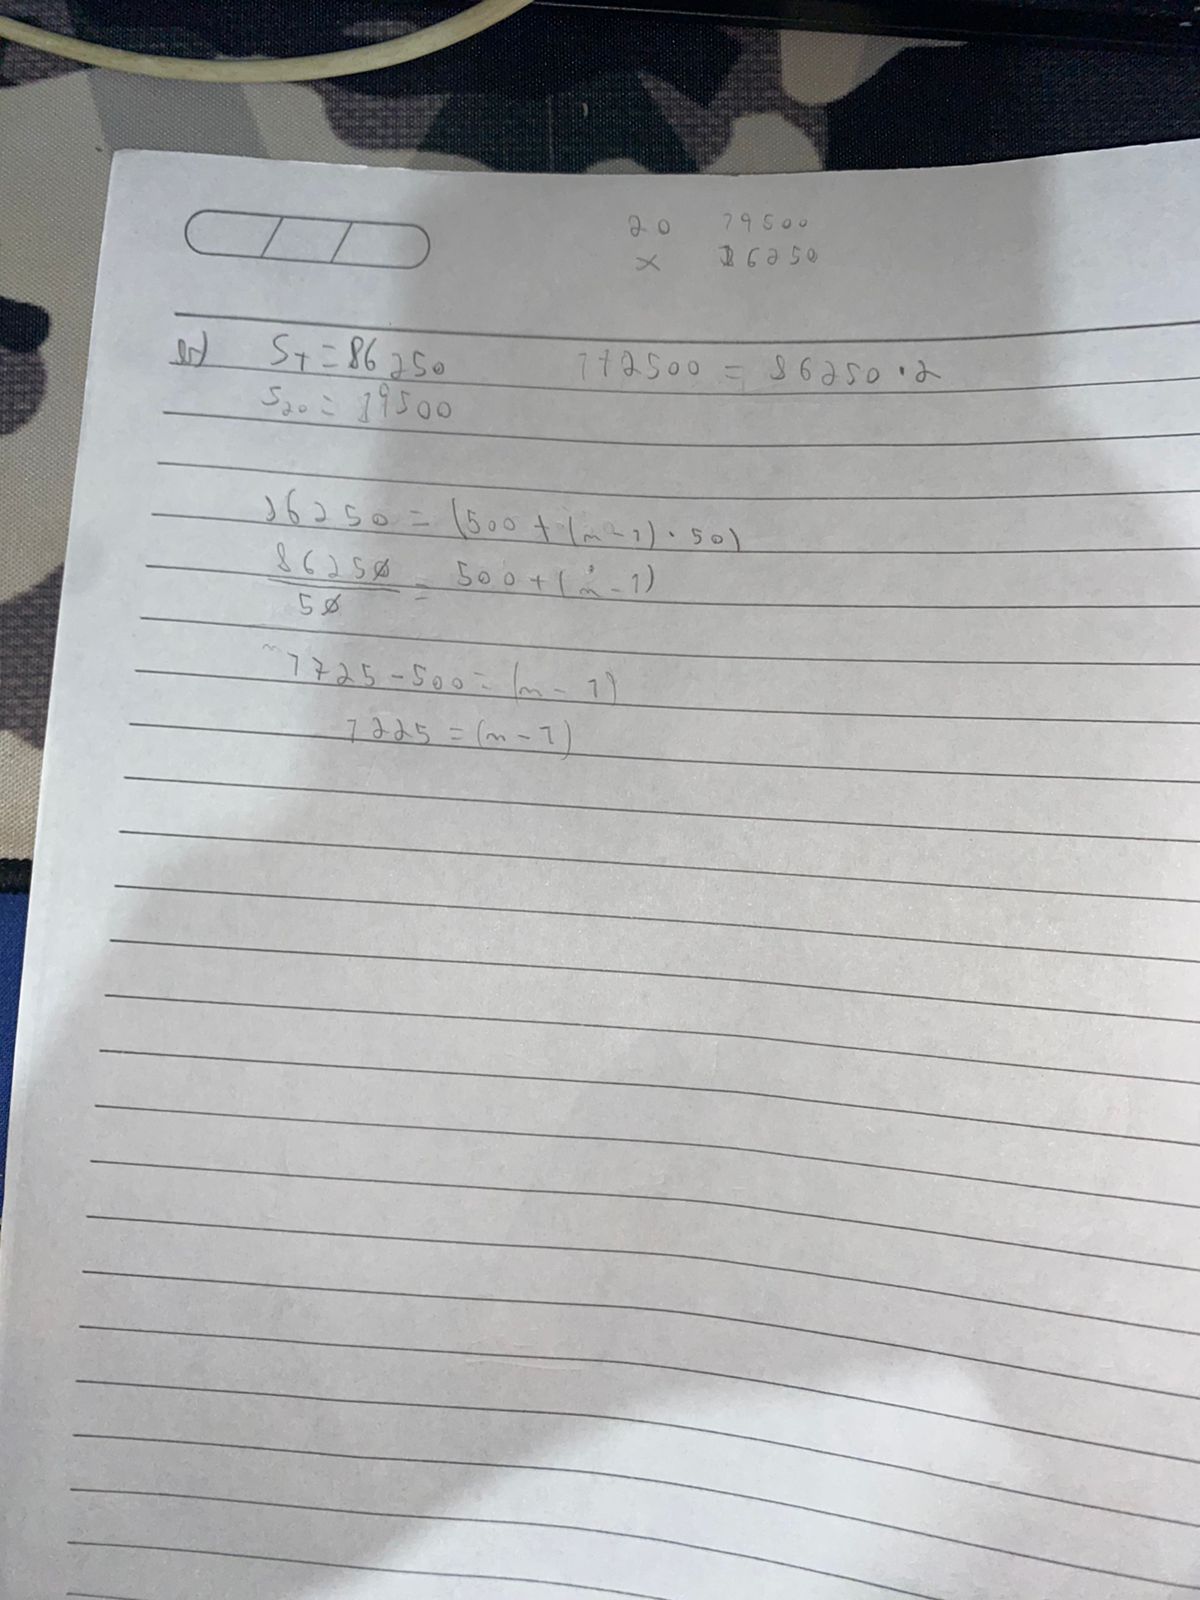 20 19500
x 86250
b) ST = 86250 172500 = 86250 · 2
S20 = 19500
86250 = (500 + (n - 1) · 50)
86250 / 50 = 500 + (n - 1)
1725 - 500 = (n - 1)
1225 = (n - 1)